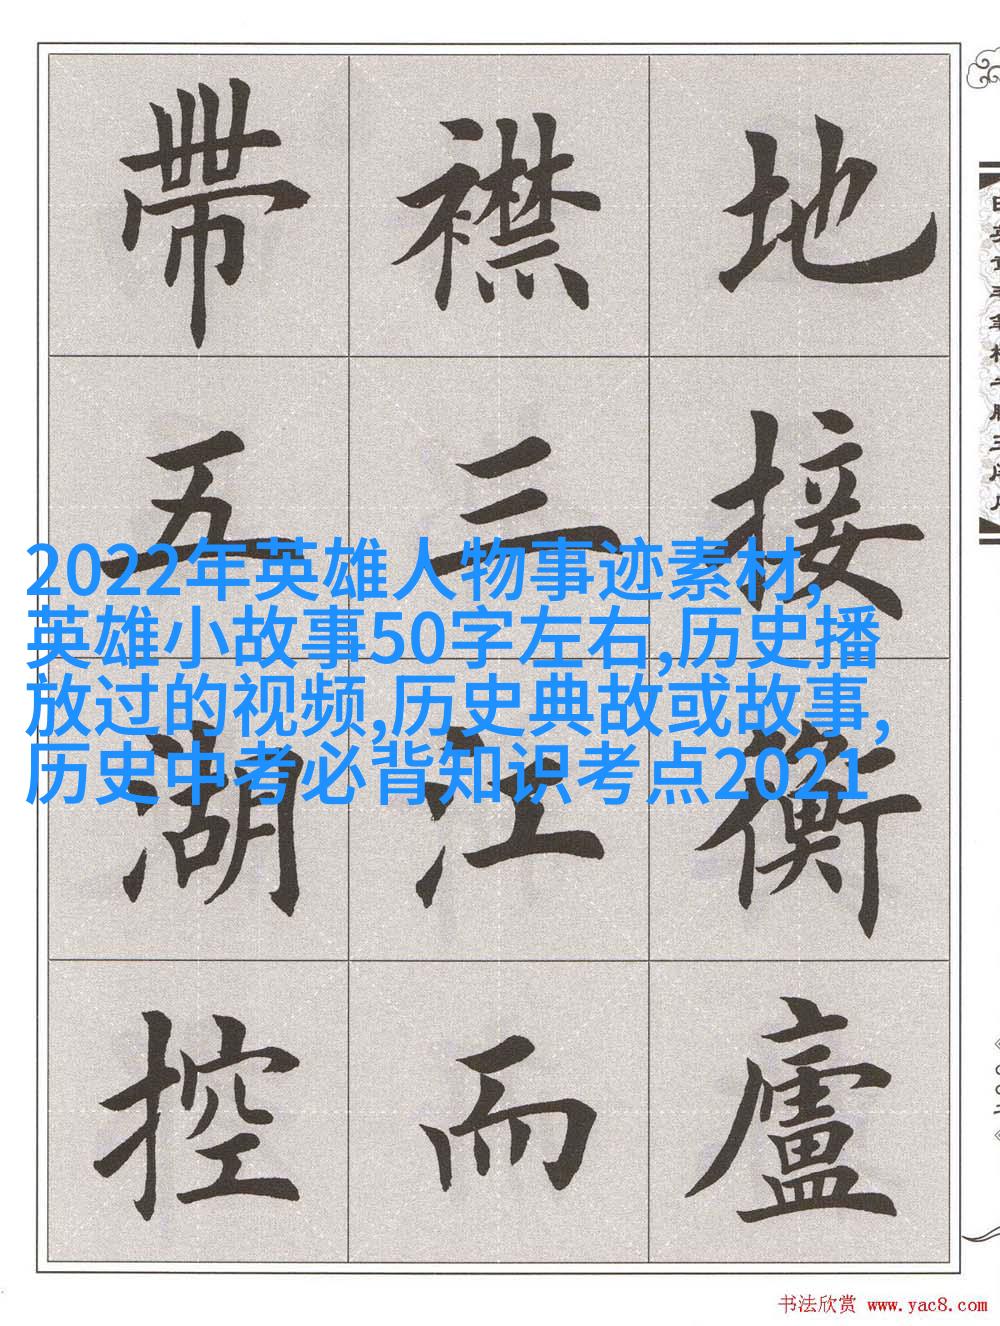 地接衡廬
襟三江而
帶五湖控
2022年英雄人物事迹素材,
英雄小故事50字左右,历史播
放过的视频,历史典故或故事,
历史中考必背知识考点2021
书法欣赏 www.yac8.com